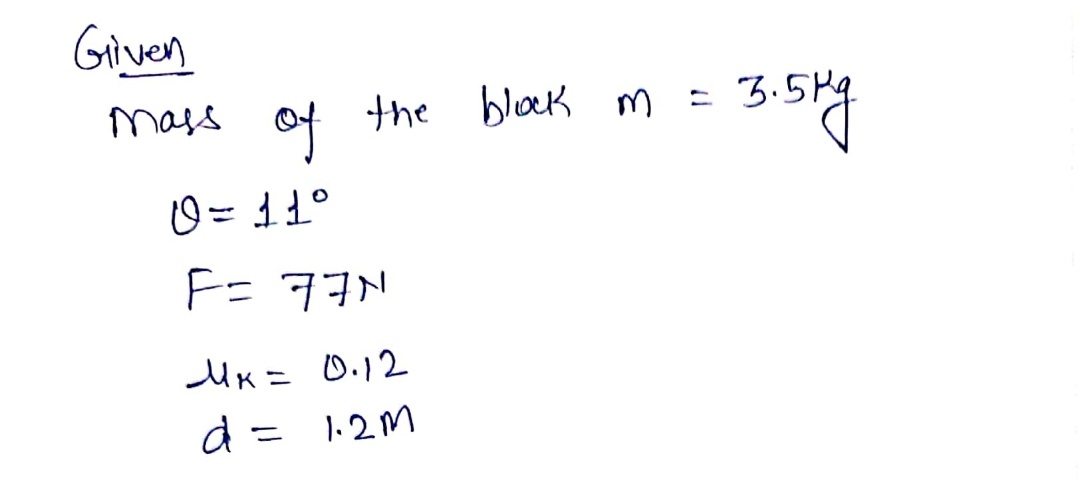 Given
mass of the block m = 3.5Kg
θ = 11°
F = 77N
μK = 0.12
d = 1.2M